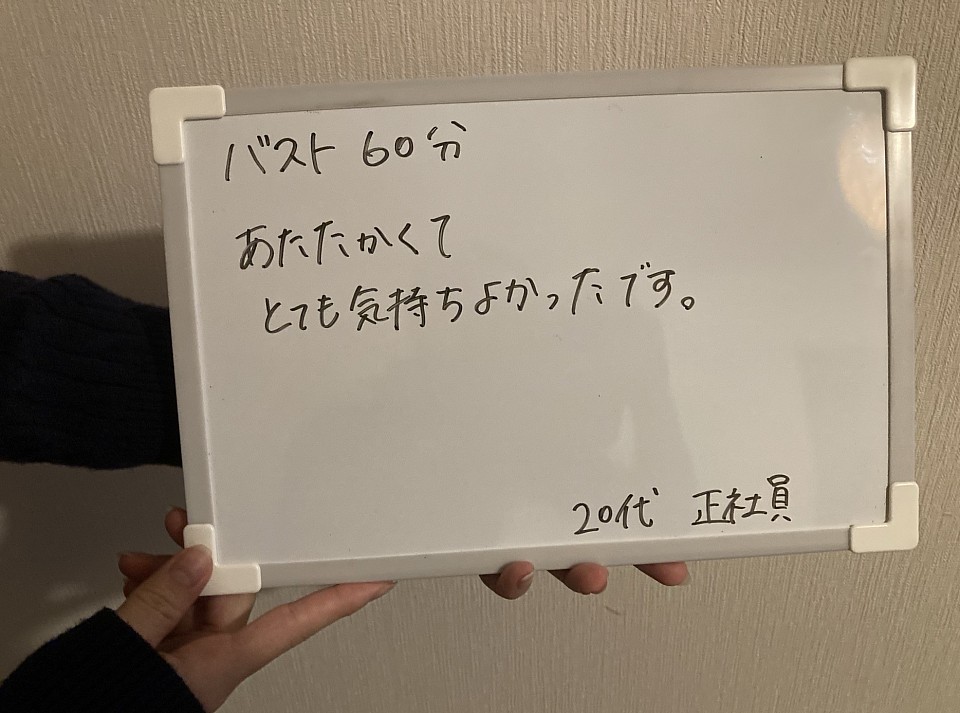 バスト 60分
あたたかくて
とても気持ちよかったです。
20代 正社員